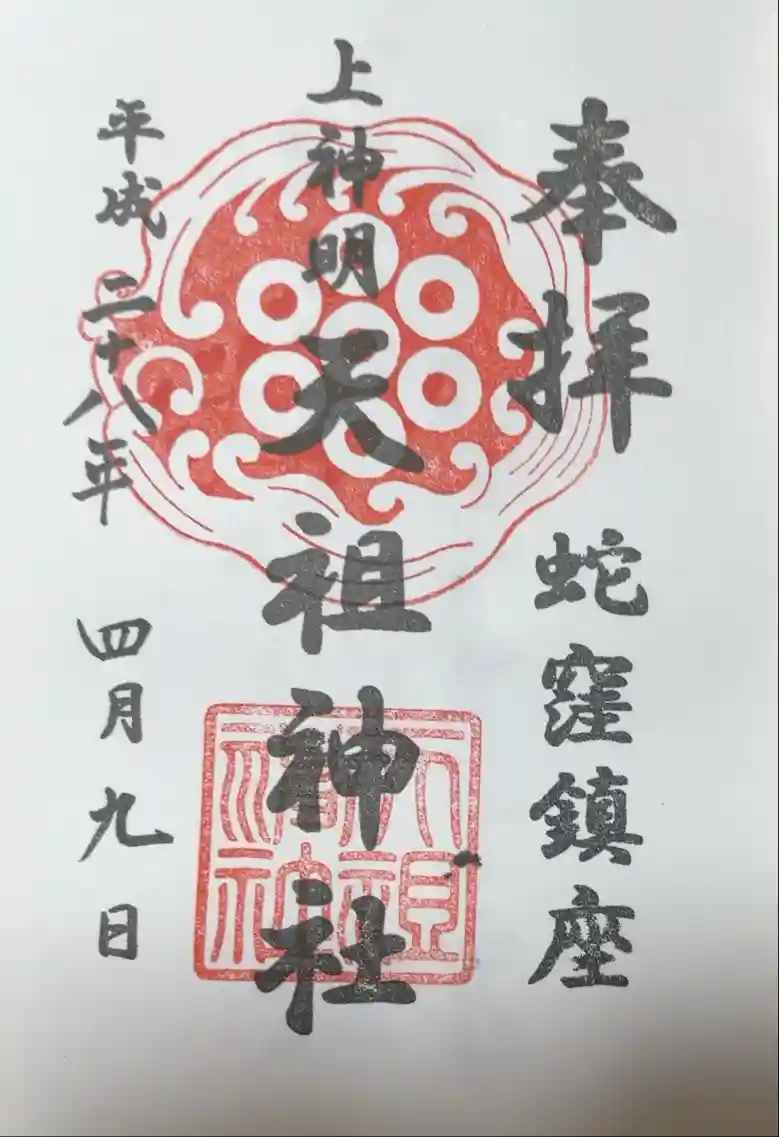 奉拝 蛇窪鎮座
上神明天祖神社
平成二十八年 四月九日